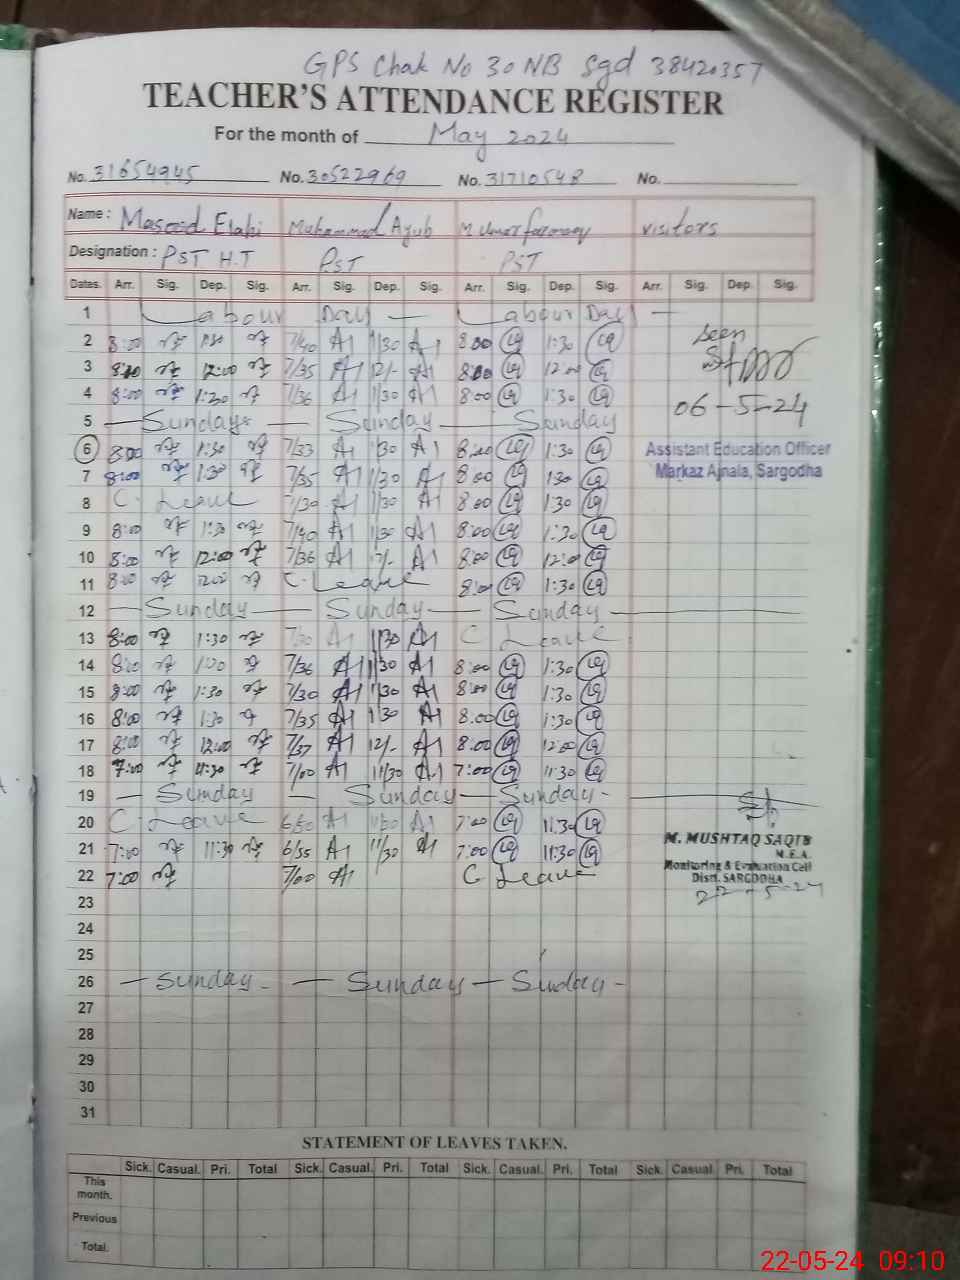 GPS Chak No 30 NB Sgd 38420357
TEACHER'S ATTENDANCE REGISTER
For the month of May 2024
No. 31654945 No. 30522969 No. 31710548 No.
Name: Masood Elahi Muhammad Ayub M Umer farooq visitors
Designation: PST H.T PST PST
Dates. Arr. Sig. Dep. Sig. Arr. Sig. Dep. Sig. Arr. Sig. Dep. Sig. Arr. Sig. Dep. Sig.
1 Labour Day — Labour Day —
2 8:00 1:30 7/40 A1 1/30 A1 8:00 1:30 Seen
3 8:00 12:00 7/35 A1 12/- A1 8:00 12:00
4 8:00 1:30 7/36 A1 1/30 A1 8:00 1:30 06-5-24
5 — Sunday — Sunday — Sunday
6 8:00 1:30 7/33 A1 1/30 A1 8:00 1:30 Assistant Education Officer
7 8:00 1:30 7/35 A1 1/30 A1 8:00 1:30 Markaz Ajnala, Sargodha
8 C. Leave 7/30 A1 1/30 A1 8:00 1:30
9 8:00 1:30 7/40 A1 1/30 A1 8:00 1:30
10 8:00 12:00 7/36 A1 A1 8:00 12:00
11 8:00 12:00 C. Leave 8:00 1:30
12 — Sunday — Sunday — Sunday —
13 8:00 1:30 7/30 A1 1/30 A1 C Leave
14 8:00 1:00 7/36 A1 1/30 A1 8:00 1:30
15 8:00 1:30 7/30 A1 1/30 A1 8:00 1:30
16 8:00 1:30 7/35 A1 1/30 A1 8:00 1:30
17 8:00 12:00 7/37 A1 12/- A1 8:00 12:00
18 7:00 11:30 7/00 A1 11/30 A1 7:00 11:30
19 — Sunday — Sunday — Sunday -
20 C. Leave 6/50 A1 11/30 A1 7:00 11:30
21 7:00 11:30 6/55 A1 11/30 A1 7:00 11:30
M. MUSHTAQ SAQIB
M.E.A.
Monitoring & Evaluation Cell
Distt. SARGODHA
22 7:00 7/00 A1 C Leave 22-5-24
23
24
25
26 — Sunday - — Sunday — Sunday -
27
28
29
30
31
STATEMENT OF LEAVES TAKEN.
Sick. Casual. Pri. Total Sick. Casual. Pri. Total Sick. Casual. Pri. Total Sick. Casual. Pri. Total
This month.
Previous
Total.
22-05-24 09:10